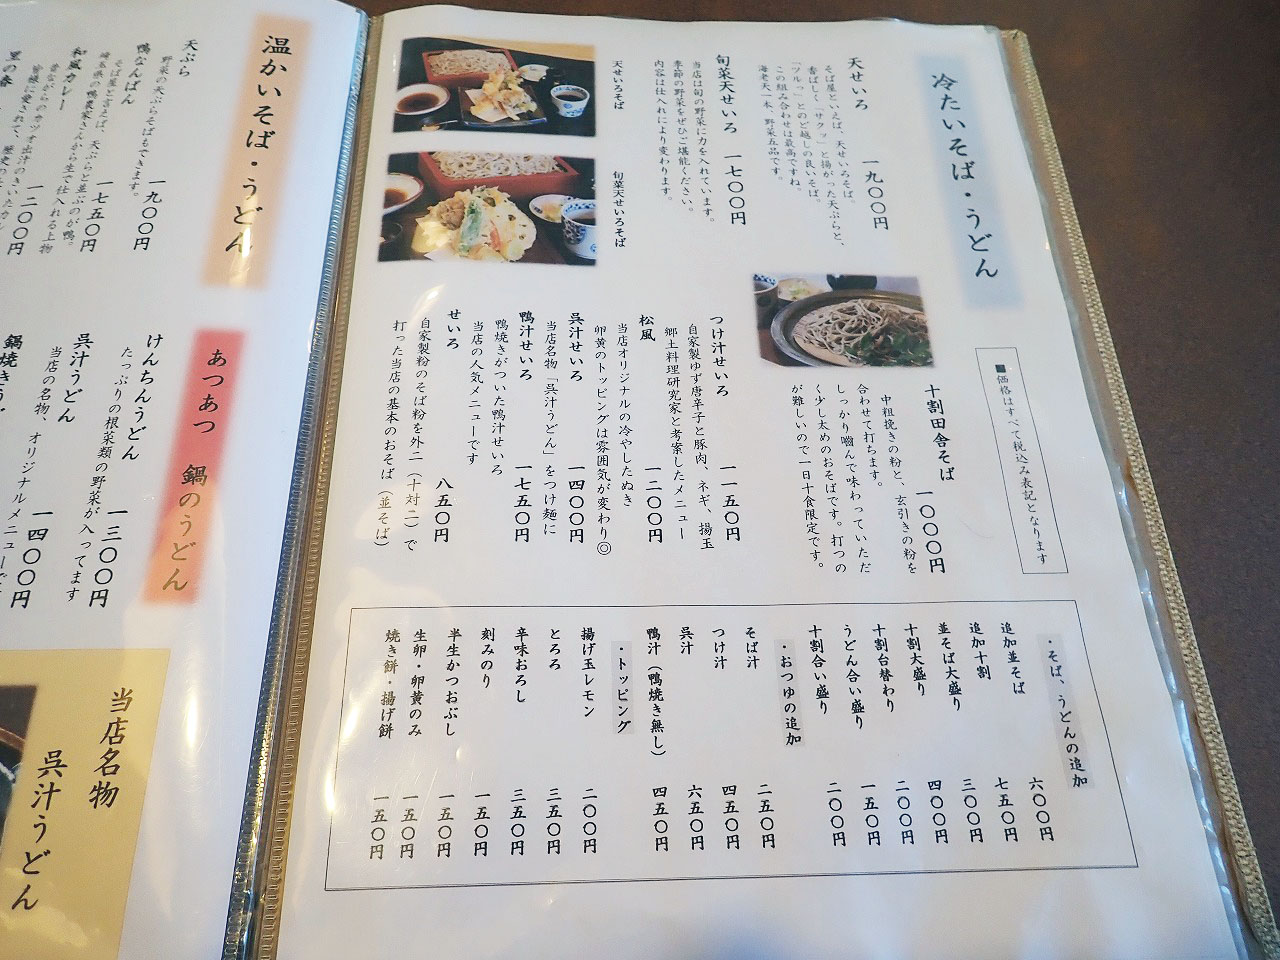 冷たいそば・うどん
■価格はすべて税込み表記となります
天せいろ 一九〇〇円
そば屋といえば、天せいろそば。
香ばしく「サクッ」と揚がった天ぷらと、
「ツルっ」とのど越しの良いそば。
この組み合わせは最高ですね。
海老天一本、野菜五品です。
旬菜天せいろ 一七〇〇円
当店は旬の野菜に力を入れています。
季節の野菜をぜひご堪能ください。
内容は仕入れにより変わります。
天せいろそば
旬菜天せいろそば
十割田舎そば 一〇〇〇円
中粗挽きの粉と、玄引きの粉を
合わせて打ちます。
しっかり噛んで味わっていただ
く少し太めのおそばです。打つの
が難しいので一日十食限定です。
つけ汁せいろ 一一五〇円
自家製ゆず唐辛子と豚肉、ネギ、揚玉
郷土料理研究家と考案したメニュー
松風 一二〇〇円
当店オリジナルの冷やしたぬき
卵黄のトッピングは雰囲気が変わり◎
呉汁せいろ 一四〇〇円
当店名物「呉汁うどん」をつけ麺に
鴨汁せいろ 一七五〇円
鴨焼きがついた鴨汁せいろ
当店の人気メニューです
せいろ 八五〇円
自家製粉のそば粉を外二(十対二)で
打った当店の基本のおそば(並そば)
・そば、うどんの追加
追加並そば 六〇〇円
追加十割 七五〇円
並そば大盛り 三〇〇円
十割大盛り 四〇〇円
十割台替わり 二〇〇円
うどん合い盛り 一五〇円
十割合い盛り 二〇〇円
・おつゆの追加
そば汁 二五〇円
つけ汁 四五〇円
呉汁 六五〇円
鴨汁(鴨焼き無し) 四五〇円
・トッピング
揚げ玉レモン 二〇〇円
とろろ 三五〇円
辛味おろし 三五〇円
刻みのり 一五〇円
半生かつおぶし 一五〇円
生卵・卵黄のみ 一五〇円
焼き餅・揚げ餅 一五〇円
温かいそば・うどん
天ぷら 一九〇〇円
野菜の天ぷらそばもできます。
鴨なんばん 一七五〇円
そば屋と言えば、天ぷらと並ぶのが鴨。
埼玉県の鴨農家さんから生で仕入れる上物
和風カレー 一二〇〇円
昔ながらのカツオ出汁のきいたカ
皆様に愛されて、歴史の
里の春
あつあつ 鍋のうどん
けんちんうどん 一三〇〇円
たっぷりの根菜類の野菜が入ってます
呉汁うどん 一四〇〇円
当店の名物、オリジナルメニューで
鍋焼きう
当店名物
呉汁うどん